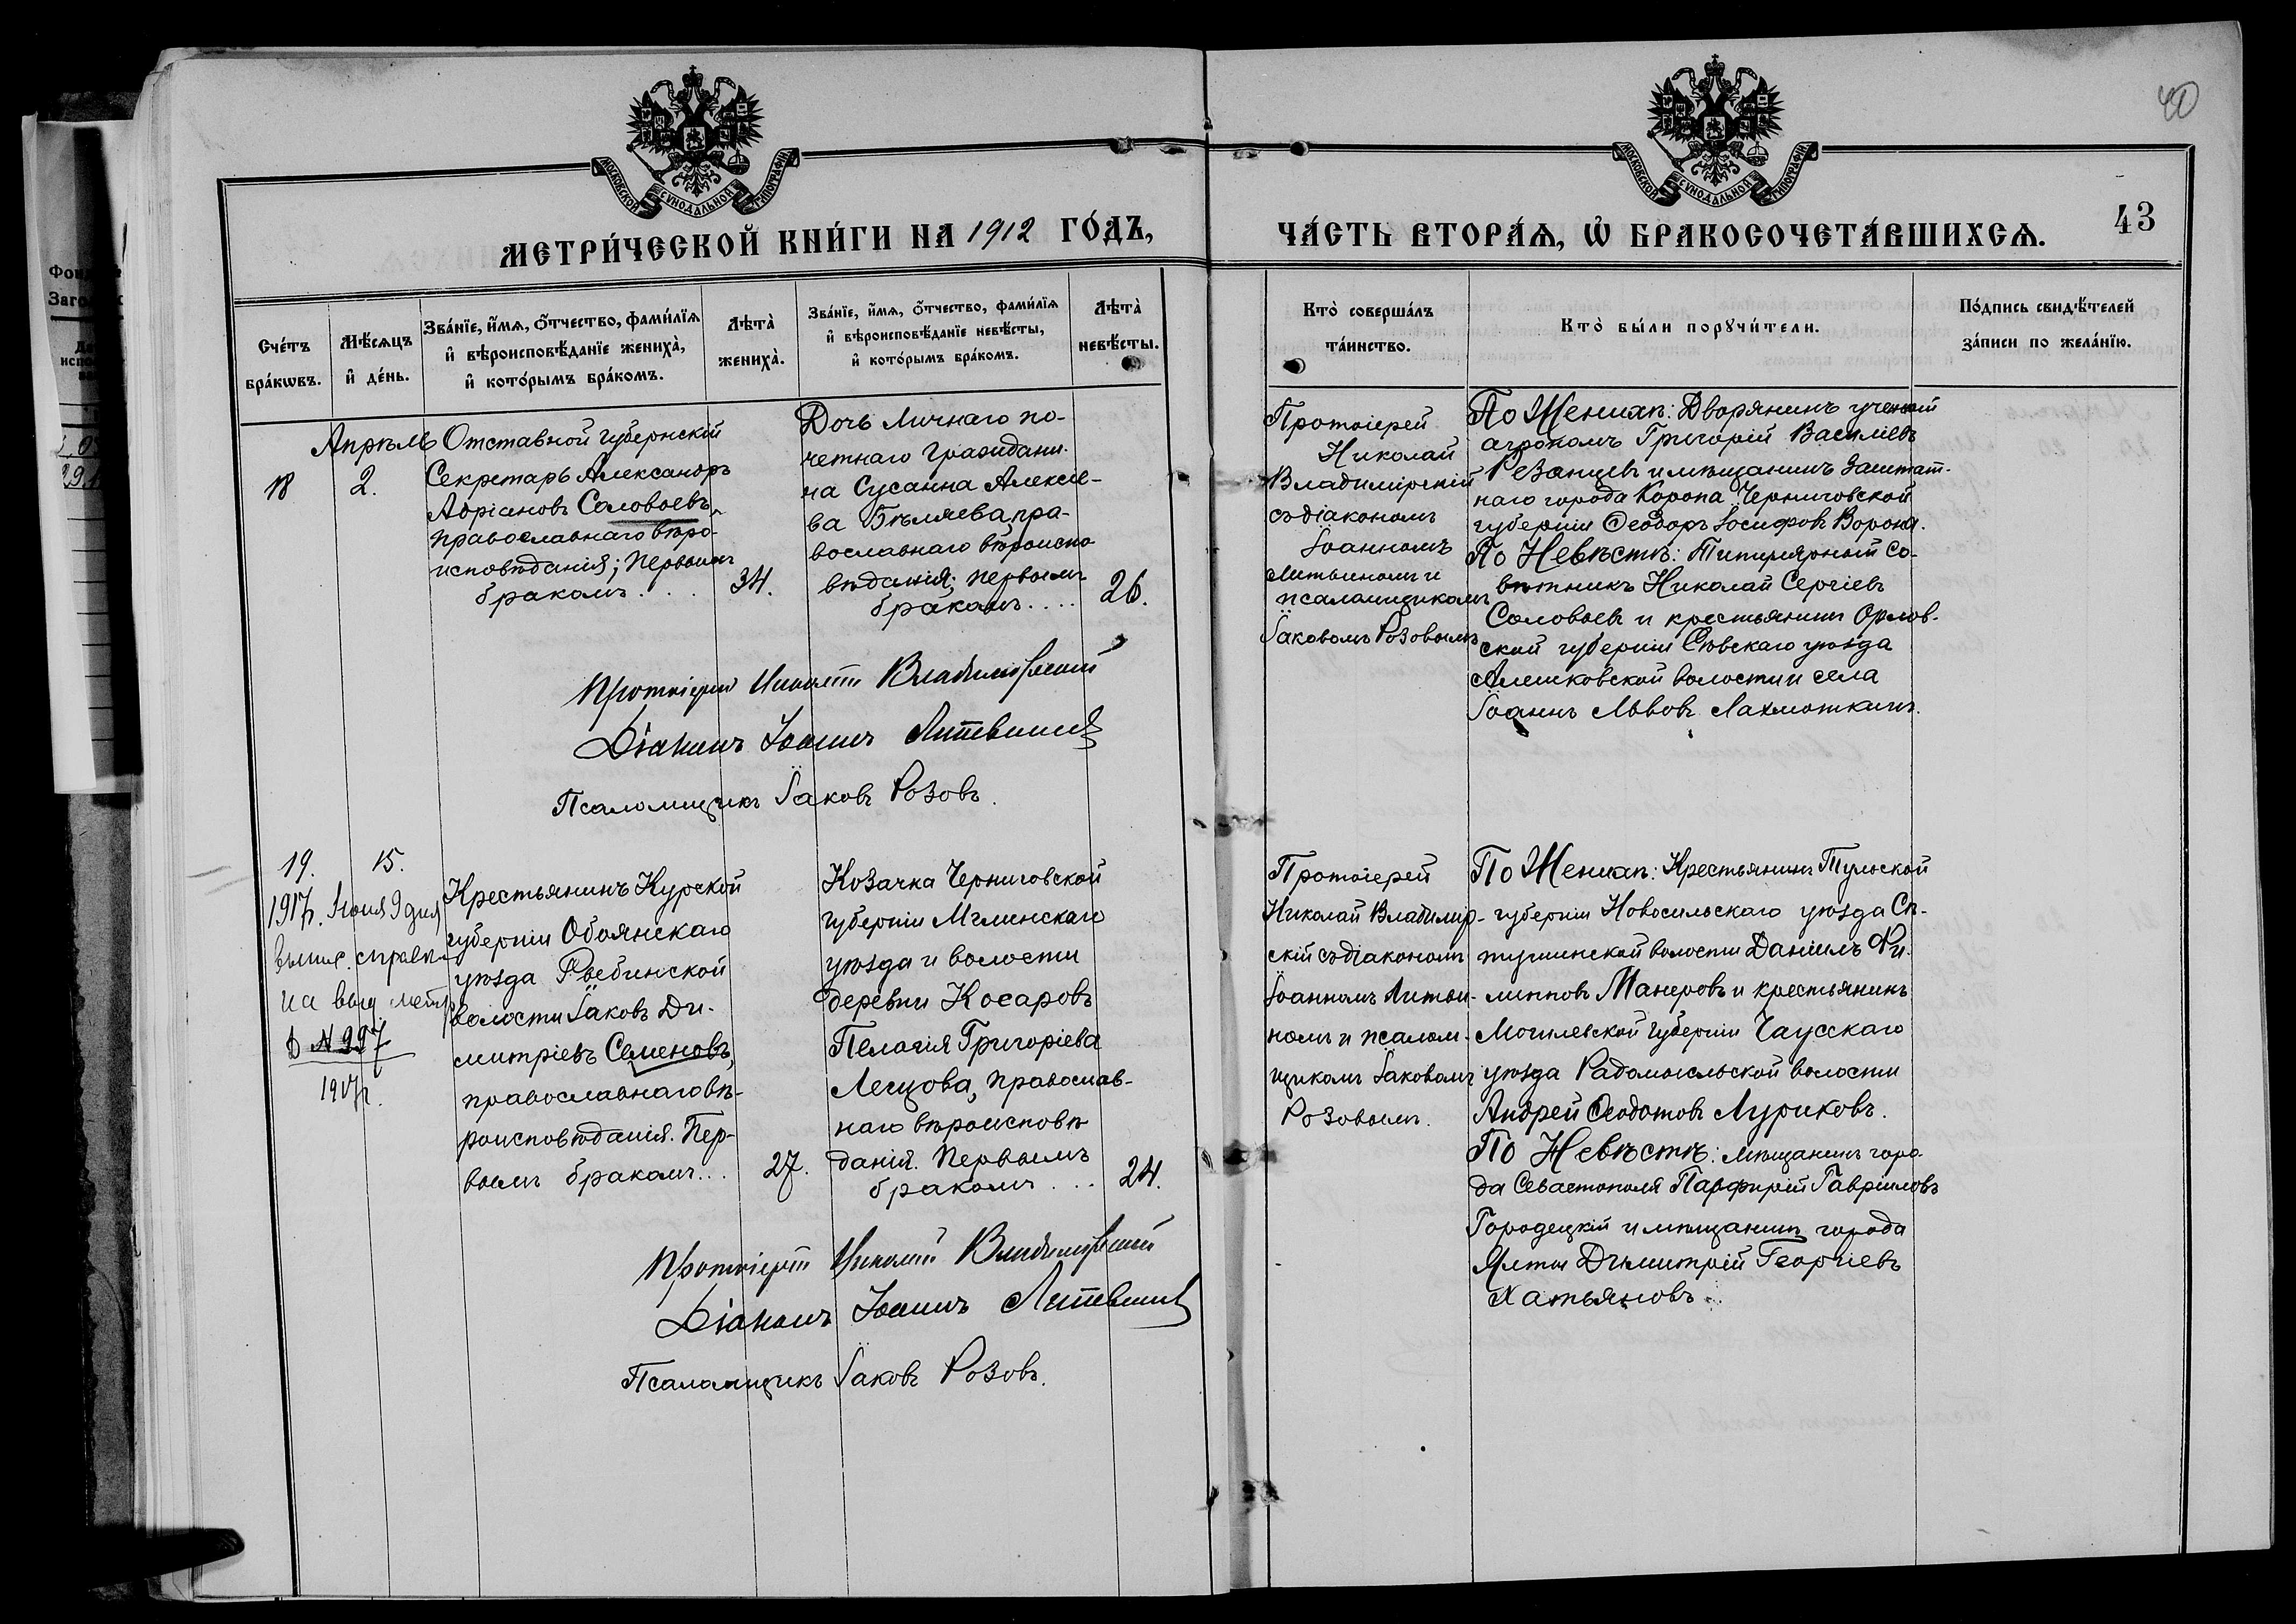 40
МОСКОВСКОЙ СѴНОДАЛЬНОЙ ТИПОГРАФІИ
МОСКОВСКОЙ СѴНОДАЛЬНОЙ ТИПОГРАФІИ
МЕТРИ́ЧЕСКОЙ КНИ́ГИ НА 1912 ГО́ДЪ,
ЧА́СТЬ ВТОРА́Ѧ, Ѡ҆ БРАКОСОЧЕТА́ВШИХСѦ.
43
Сче́тъ бра́кѡвъ.
Мѣ́сѧцъ и҆ де́нь.
Зва́нїе, и҆́мѧ, ѻ҆́тчество, фами́лїѧ
и҆ вѣроисповѣ́данїе жениха̀,
и҆ кото́рымъ бра́комъ.
Лѣта̀ жениха̀.
Зва́нїе, и҆́мѧ, ѻ҆́тчество, фами́лїѧ
и҆ вѣроисповѣ́данїе невѣ́сты,
и҆ кото́рымъ бра́комъ.
Лѣта̀ невѣ́сты.
Кто̀ соверша́лъ та́инство.
Кто̀ бы́ли порꙋчи́тели.
По́дпись свидѣ́телей за́писи по жела́нїю.
18
Апрѣль
2.
Отставной губернскій
Секретарь Александръ
Адріановъ Соловьевъ,
православнаго вѣро-
исповѣданія; первымъ
бракомъ . . .
34.
Дочь Личнаго по-
четнаго Граждани-
на Сусанна Алексѣе-
ва Бѣляева, пра-
вославнаго вѣроиспо
вѣданія; первымъ
бракомъ. . . .
26.
Протоіерей
Николай
Владимірскій
съ діакономъ
Іоанномъ
Литвиномъ и
псаломщикомъ
Іаковомъ Розовымъ
По Женихѣ: Дворянинъ ученый
агрономъ Григорій Василіевъ
Резанцевъ и мѣщанинъ Заштат-
наго города Коропа Черниговской
губерніи Ѳеодоръ Іосифовъ Ворона.
По Невѣстѣ: Титулярный Со-
вѣтникъ Николай Сергіевъ
Соловьевъ и крестьянинъ Орлов-
ской губерніи Сѣвскаго уѣзда
Алешковской волости и села
Іоаннъ Львовъ Лахмоткинъ.
Протоіерей Николай Владимірскій
Діаконъ Іоаннъ Литвинъ
Псаломщикъ Іаковъ Розовъ.
19.
15.
1917г. Іюня 9 дня
выпис. справка
на выд. метр.
№ 997
1917г.
Крестьянинъ Курской
губерніи Обоянскаго
уѣзда
волости Іаковъ Ди-
митріевъ Семеновъ,
православнаго вѣ-
роисповѣданія. Пер-
вымъ бракомъ...
27.
Козачка Черниговской
губерніи Мглинскаго
уѣзда и волости
деревни Косаровъ
Пелагія Григоріева
Легцова, православ-
наго вѣроисповѣ
данія. Первымъ
бракомъ . . .
24.
Протоіерей
Николай Владимір-
скій съ діакономъ
Іоанномъ Литви-
номъ и псалом-
щикомъ Іаковомъ
Розовымъ.
По Женихѣ: Крестьянинъ Тульской
губерніи Новосильскаго уѣзда Сѣ-
тушинской волости Даніилъ Фи-
липповъ Манеровъ и крестьянинъ
Могилевской Губерніи Чаусскаго
уѣзда Радомысльской волости
Андрей Ѳеодотовъ Луриковъ.
По Невѣстѣ: мѣщанинъ горо-
да Севастополя Парфирій Гавриловъ
Городецкій и мѣщанинъ города
Ялты Димитрій Георгіевъ
Хатьяновъ.
Протоіерей Николай Владимірскій
Діаконъ Іоаннъ Литвинъ
Псаломщикъ Іаковъ Розовъ.